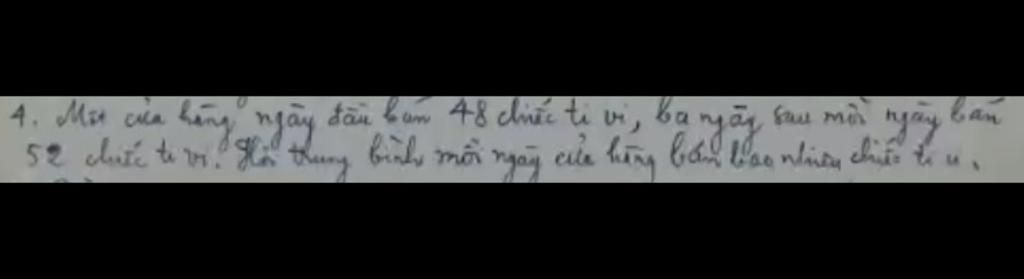 4. Một cửa hàng ngày đầu bán 48 chiếc ti vi, ba ngày sau mỗi ngày bán
52 chiếc ti vi. Hỏi trung bình mỗi ngày cửa hàng bán bao nhiêu chiếc ti vi.